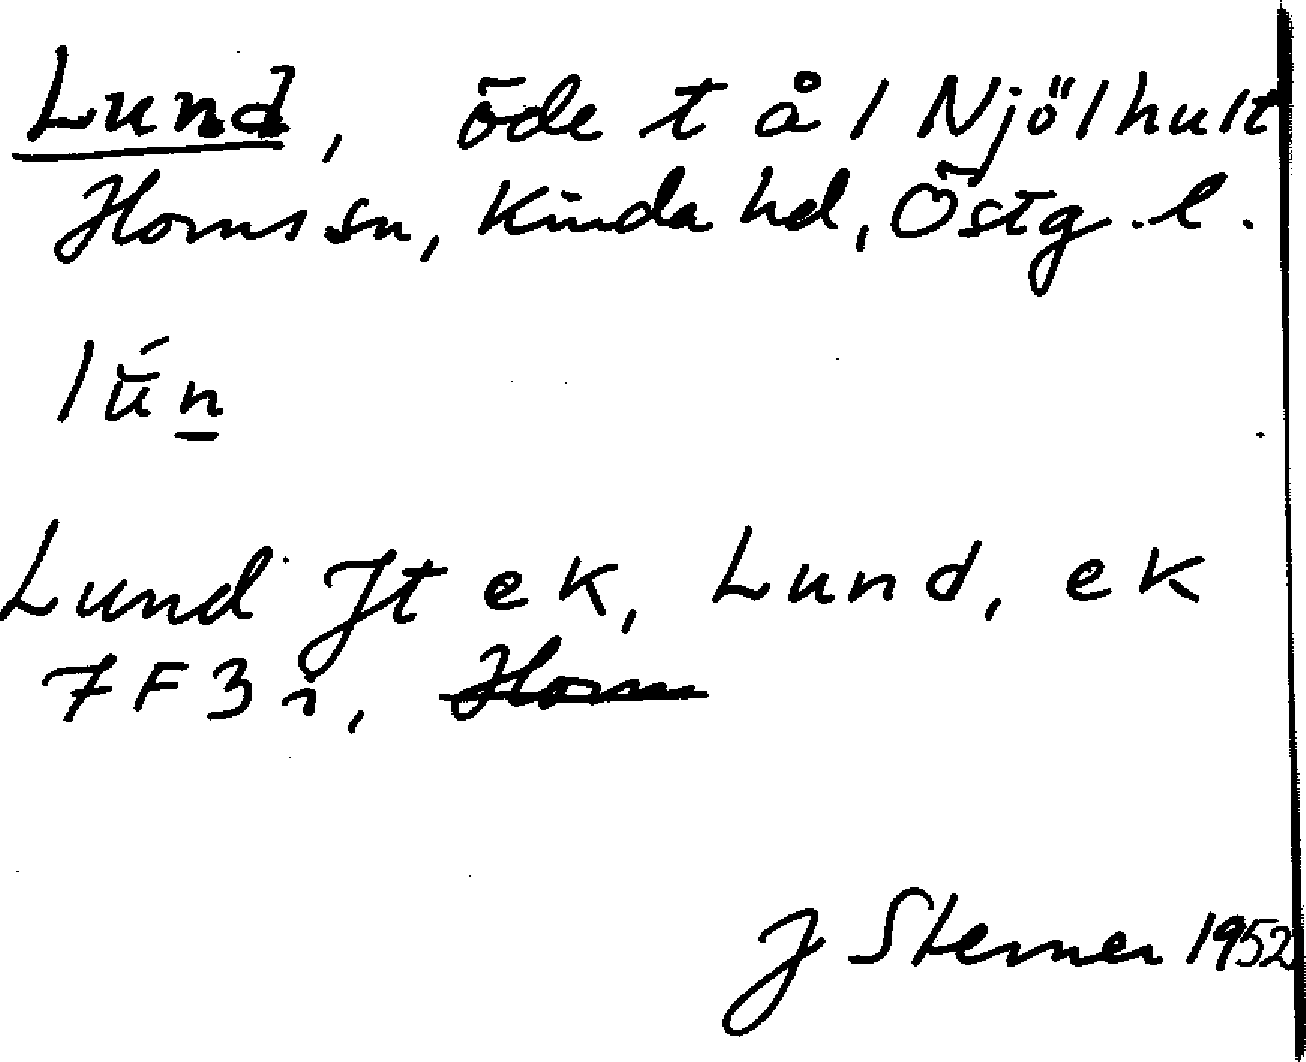 Lund, öde t å 1 Njölhult
Horns sn, Kinda hd, Östg. l.
lǘn
Lund Jt ek, Lund, ek
7F3i, Horn
J Sterner 1952